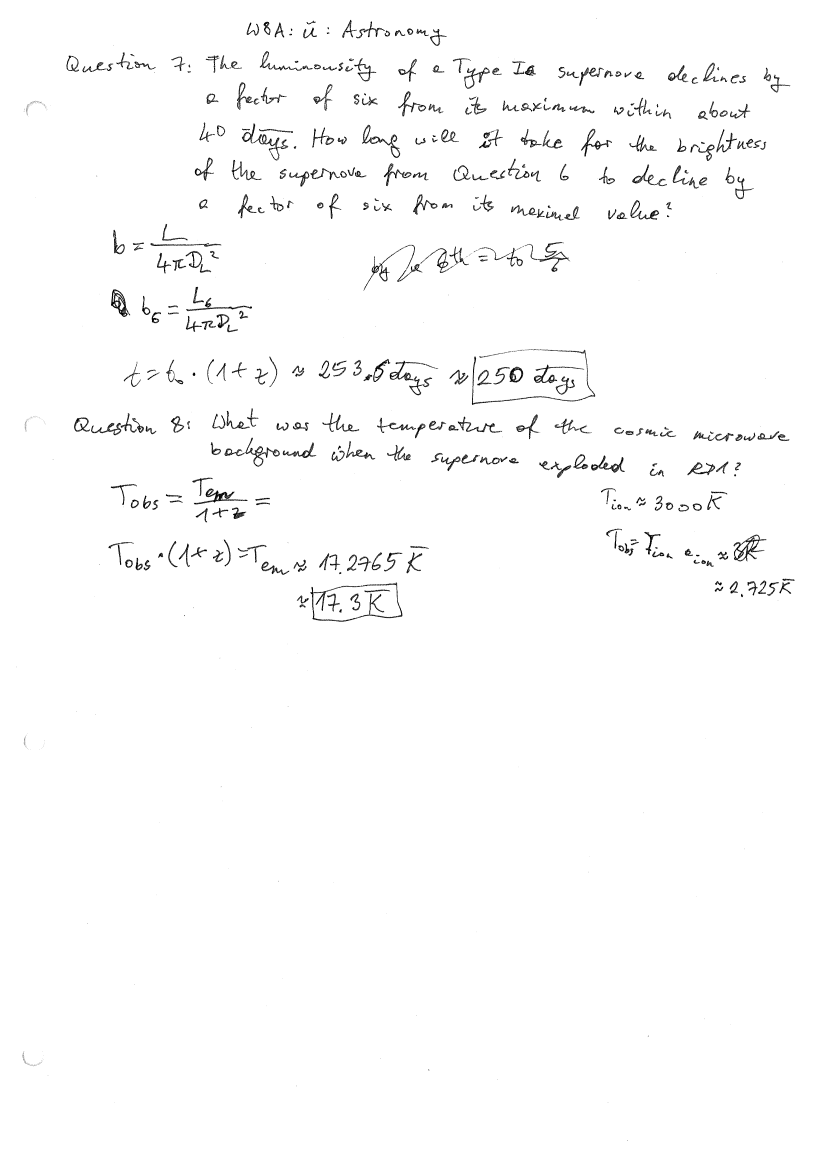 W8A: ü: Astronomy
Question 7: The luminousity of a Type Ia supernova declines by
a factor of six from its maximum within about
40 days. How long will it take for the brightness
of the supernova from Question 6 to decline by
a factor of six from its maximal value?
b = L / 4πD_L²
b₆ = L₆ / 4πD_L²
t = t₀ · (1+z) ≈ 253.6 days ≈ 250 days
Question 8: What was the temperature of the cosmic microwave
background when the supernova exploded in RD1?
T_obs = T_em / 1+z =
T_ion ≈ 3000 K
T_obs · (1+z) = T_em ≈ 17.2765 K
T_obs = T_ion a_ion ≈
≈ 2.725 K
≈ 17.3 K